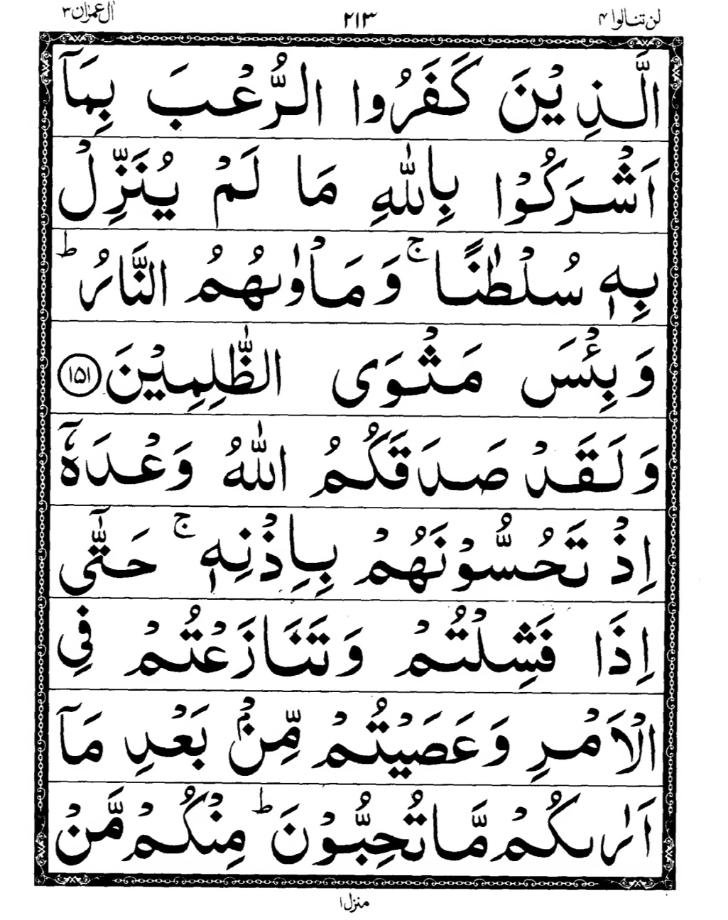 لن تنالوا ۴ ۲۱۳ اٰل عمرٰن ۳
الَّذِیْنَ كَفَرُوا الرُّعْبَ بِمَاۤ
اَشْرَكُوْا بِاللّٰهِ مَا لَمْ یُنَزِّلْ
بِهٖ سُلْطٰنًا ۚ وَمَاْوٰىهُمُ النَّارُ ؕ
وَبِئْسَ مَثْوَی الظّٰلِمِیْنَ ﴿۱۵۱﴾
وَلَقَدْ صَدَقَكُمُ اللّٰهُ وَعْدَهٗۤ
اِذْ تَحُسُّوْنَهُمْ بِاِذْنِهٖ ۚ حَتّٰۤی
اِذَا فَشِلْتُمْ وَتَنَازَعْتُمْ فِی
الْاَمْرِ وَعَصَیْتُمْ مِّنْۢ بَعْدِ مَاۤ
اَرٰىكُمْ مَّا تُحِبُّوْنَ ؕ مِنْكُمْ مَّنْ
منزل۱